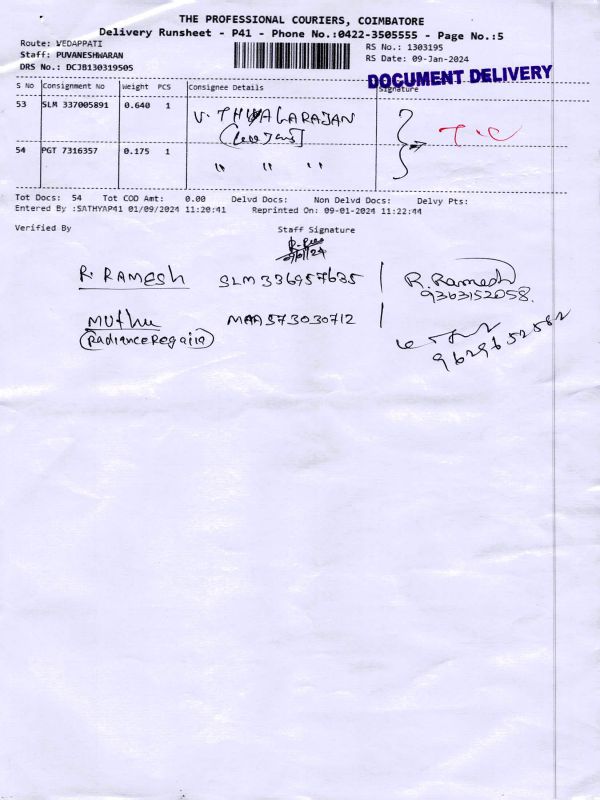 THE PROFESSIONAL COURIERS, COIMBATORE
Delivery Runsheet - P41 - Phone No.:0422-3505555 - Page No.:5
Route: VEDAPPATI
RS No.: 1303195
Staff: PUVANESHWARAN
RS Date: 09-Jan-2024
DRS No.: DCJB130319505
DOCUMENT DELIVERY
S No Consignment No Weight PCS Consignee Details Signature
53 SLM 337005891 0.640 1 V. THYAGARAJAN
T.C
54 PGT 7316357 0.175 1 " " "
Tot Docs: 54 Tot COD Amt: 0.00 Delvd Docs: Non Delvd Docs: Delvy Pts:
Entered By :SATHYAP41 01/09/2024 11:20:41 Reprinted On: 09-01-2024 11:22:44
Verified By Staff Signature
R. RAMESH SLM 336957635 R. Ramesh
9363152058.
Muthu MAA573030712
(Radiance Regalia) 9629652582